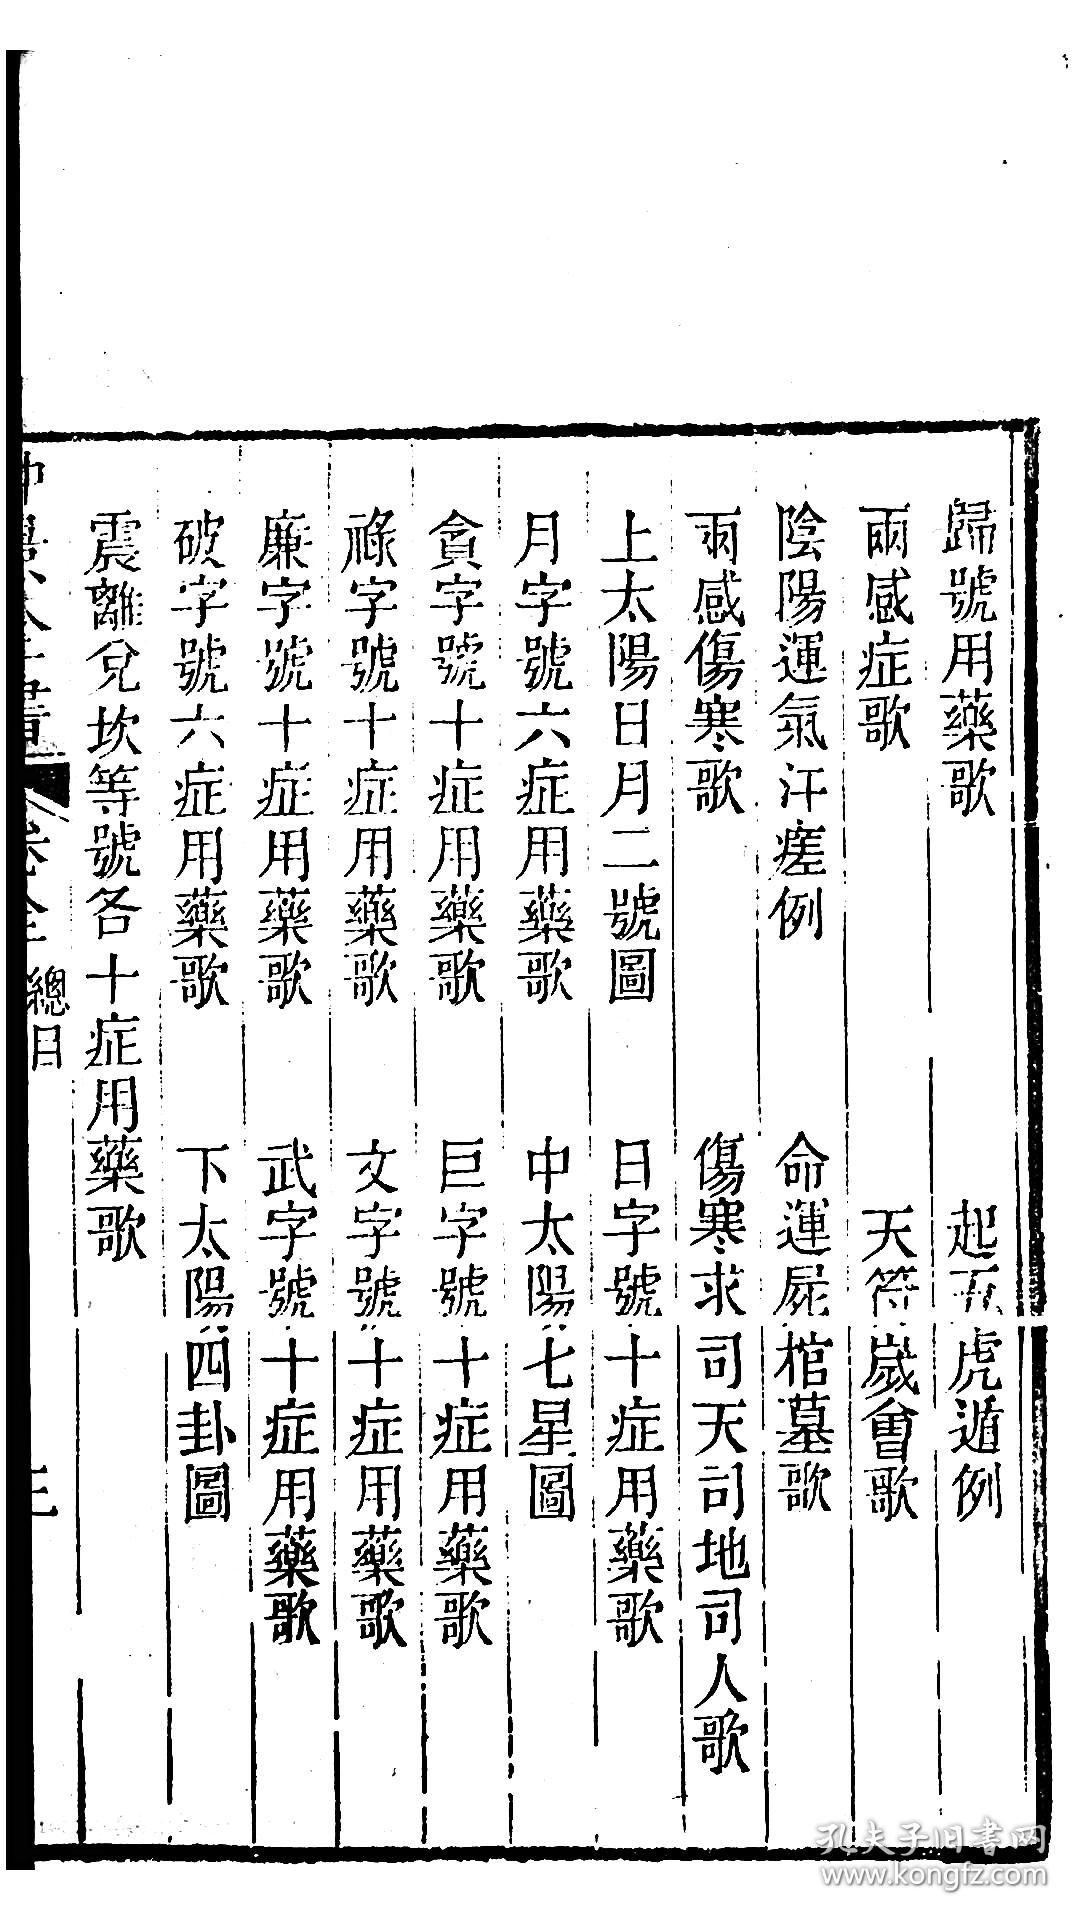 歸號用藥歌　起五虎遁例
兩感症歌　天符歲會歌
陰陽運氣汗瘥例　命運屍棺墓歌
兩感傷寒歌　傷寒求司天司地司人歌
上太陽日月二號圖　日字號十症用藥歌
月字號六症用藥歌　中太陽七星圖
貪字號十症用藥歌　巨字號十症用藥歌
祿字號十症用藥歌　文字號十症用藥歌
廉字號十症用藥歌　武字號十症用藥歌
破字號六症用藥歌　下太陽四卦圖
震離兌坎等號各十症用藥歌
卷全 總目
孔夫子旧书网
www.kongfz.com